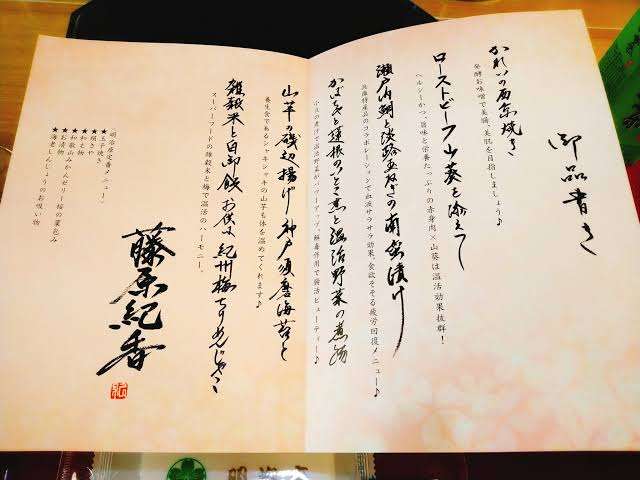 御品書き
かれいの西京焼き
発酵お味噌で美腸、美肌を目指しましょう♪
ローストビーフ山葵を添えて
ヘルシーかつ、旨味と栄養たっぷりの赤身肉×山葵は温活効果抜群!
瀬戸内鯛と淡路玉ねぎの南蛮漬け
兵庫特産品のコラボレーションで血液サラサラ効果、食欲そそる疲労回復メニュー♪
かぼちゃと蓮根のいとこ煮と温治野菜の煮物
小豆の煮汁で温治野菜がパワーアップ。解毒作用で腸活ビューティー♪
山芋の磯辺揚げ 神戸須磨海苔と
養生食であるシャキシャキの山芋も体を温めてくれます♪
雑穀米と白御飯 お供は 紀州梅ちりめんじゃこ
スーパーフードの雑穀米と梅で温活のハーモニー。
〈明治座定番メニュー〉
★玉子焼き
★焼き
★和え物
★和歌山みかんゼリー桜の葉包み
★お漬物
★海老しんじょうのお吸い物
藤原紀香
紀
明治座